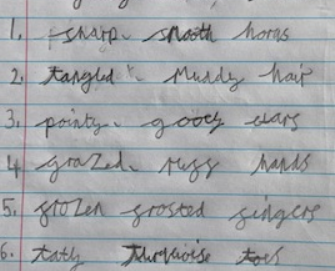 1. sharp, smooth horns
2. tangled, muddy hair
3. pointy, gooey ears
4 grazed, hands
5. frozen frosted fingers
6. turquoise toes